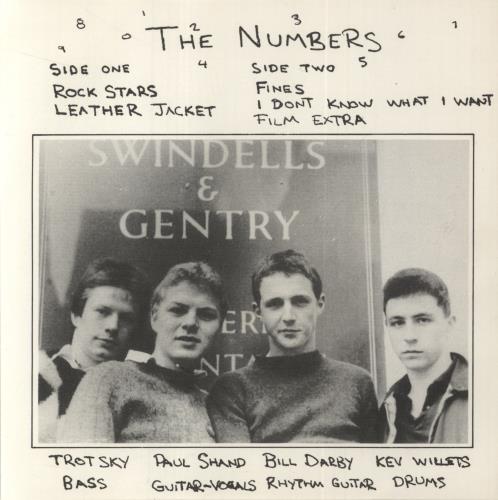 8 1 2 3 6 7
9 0 THE NUMBERS
4 5
SIDE ONE
ROCK STARS
LEATHER JACKET
SIDE TWO
FINES
I DONT KNOW WHAT I WANT
FILM EXTRA
SWINDELLS
&
GENTRY
ER
NTA
TROTSKY
BASS
PAUL SHAND
GUITAR-VOCALS
BILL DARBY
RHYTHM GUITAR
KEV WILLETS
DRUMS